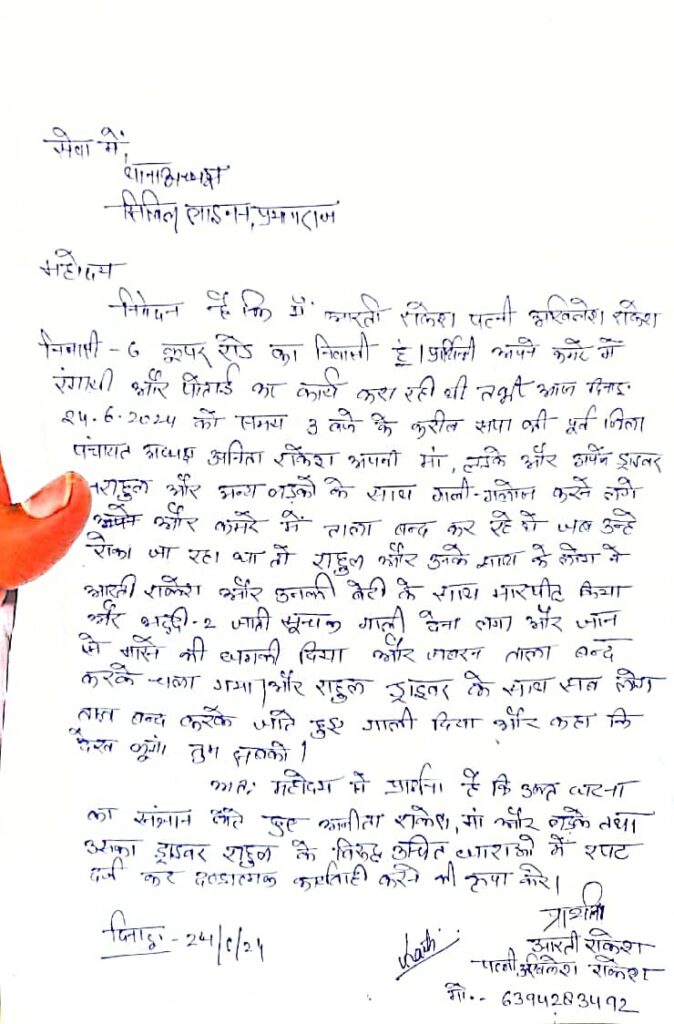 सेवा में,
थानाध्यक्ष
सिविल लाइन्स, प्रयागराज
महोदय
निवेदन है कि मैं आरती राकेश पत्नी अखिलेश राकेश
निवासी - 6 कूपर रोड का निवासी हूं। प्रार्थिनी अपने कमरे में
रंगायी और पोताई का कार्य करा रही थी तभी आज दिनाङ्क
24.6.2024 को समय 3 बजे के करीब सपा की पूर्व जिला
पंचायत अध्यक्ष अनिता राकेश अपनी मां, लड़के और अपने ड्राइवर
राहुल और अन्य लड़को के साथ गाली-गलौज करने लगे
और कमरे में ताला बन्द कर रहे थे जब उन्हे
रोका जा रहा था तो राहुल और उनके साथ के लोग ने
आरती राकेश और उनकी बेटी के साथ मारपीट किया
और भद्दी-2 जाती सूचक गाली देना लगा और जान
से मारने की धमकी दिया और जबरन ताला बन्द
करके चला गया। और राहुल ड्राइवर के साथ सब लोग
ताला बन्द करके जाते हुए गाली दिया और कहा कि
देख लूंगा तुम सबको।
अतः महोदय से प्रार्थना है कि उक्त घटना
का संज्ञान लेते हुए अनीता राकेश, मां और लड़के तथा
उसका ड्राइवर राहुल के विरुद्ध उचित धाराओ में रपट
दर्ज कर दण्डात्मक कार्यवाही करने की कृपा करे।
प्रार्थिनी
दिनाङ्क - 24/6/24
आरती राकेश
पत्नी अखिलेश राकेश
मो.- 6394283492